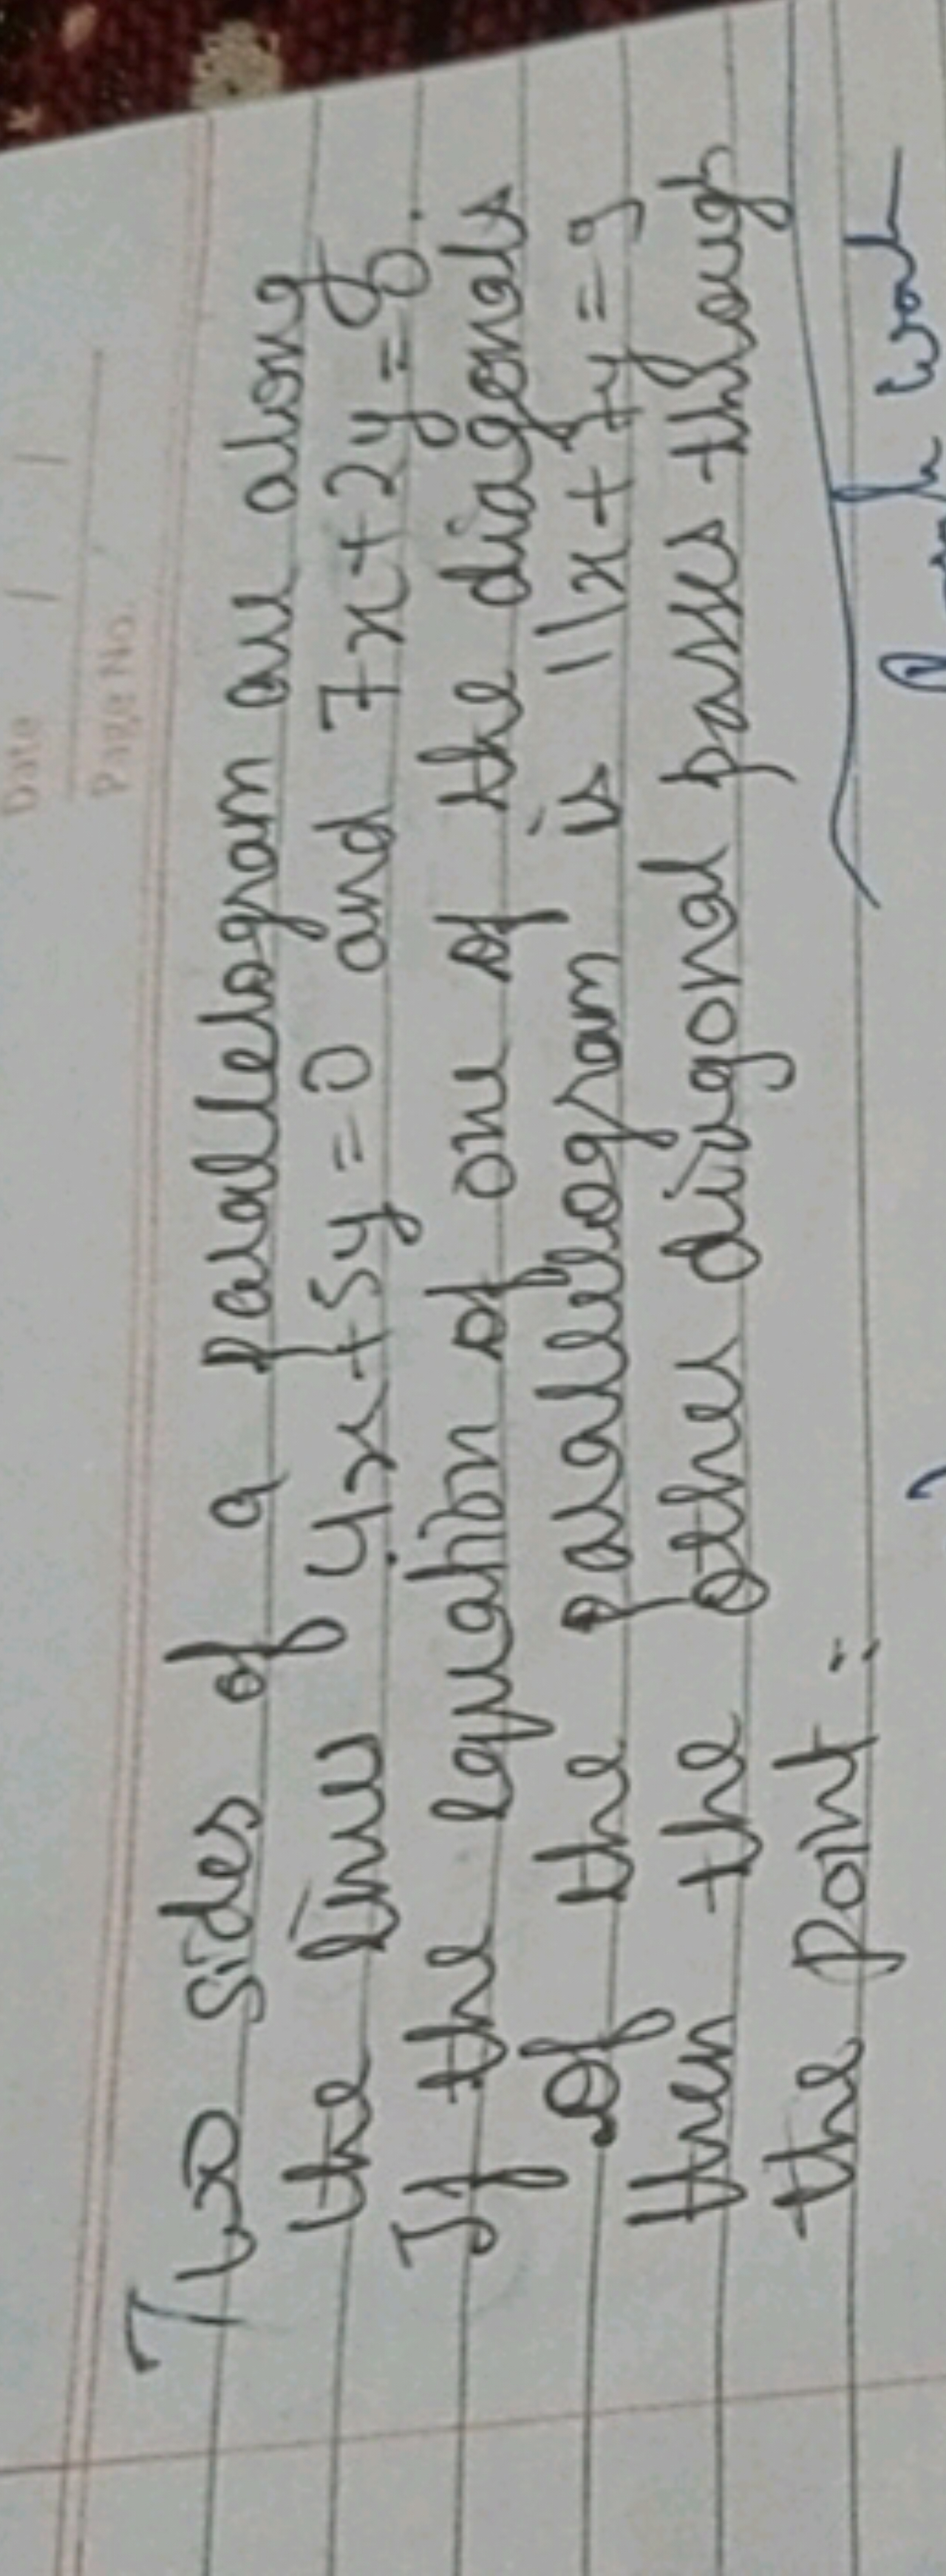 Date / /
Page No.
Two sides of a parallelogram are along
the lines 4x+5y=0 and 7x+2y=0.
If the equation of one of the diagonals
of the parallelogram is 11x+7y=9
then the other diagonal passes though
the point :
Work